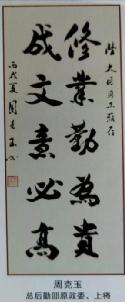 陆大同同志雅存
修業勤為貴
成文意必高
丙戌夏周克玉书
周克玉
总后勤部原政委、上将